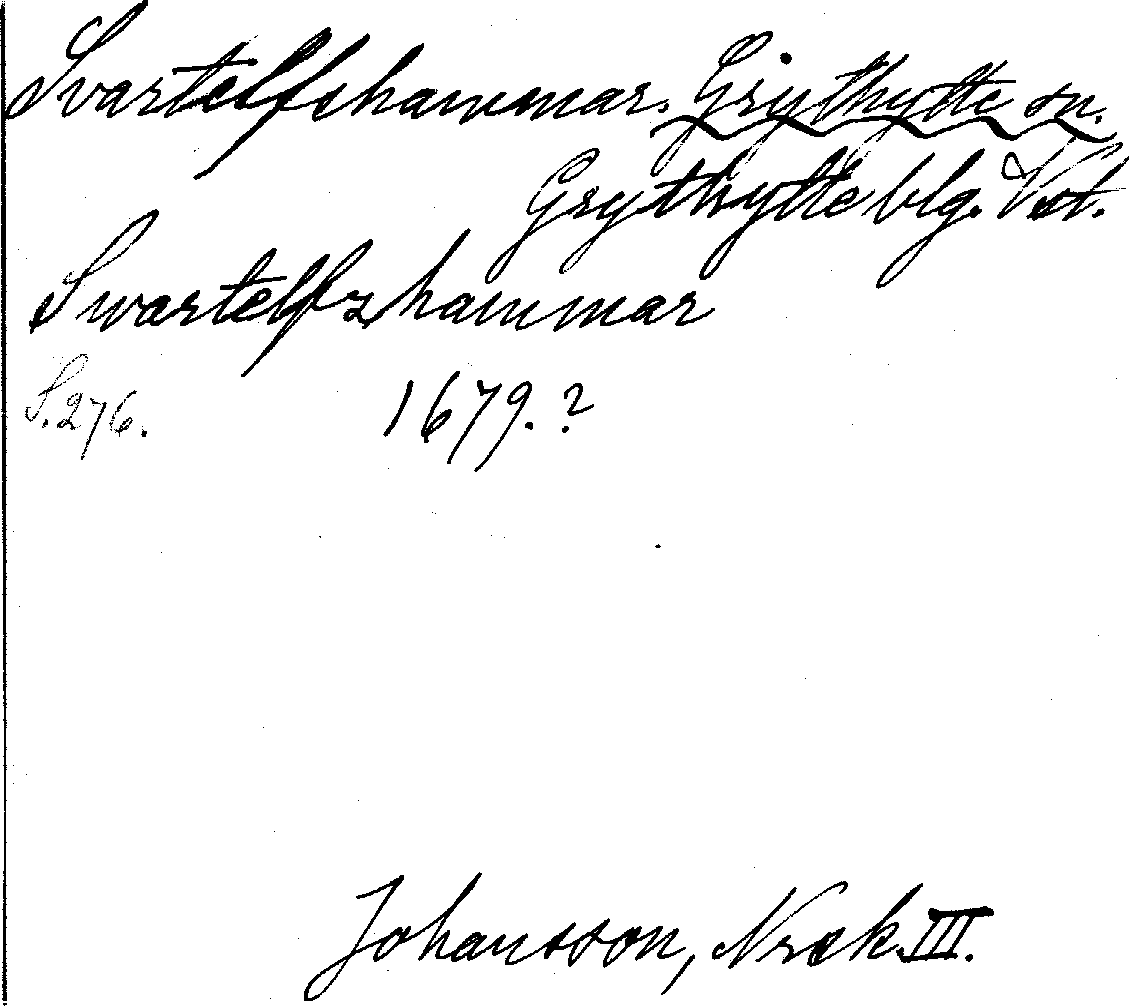 Svartelfshammar. Grythytte sn.
Grythytte blg. Vst.
Swartelfzhammar
S. 276. 1679.?
Johansson, Norak III.